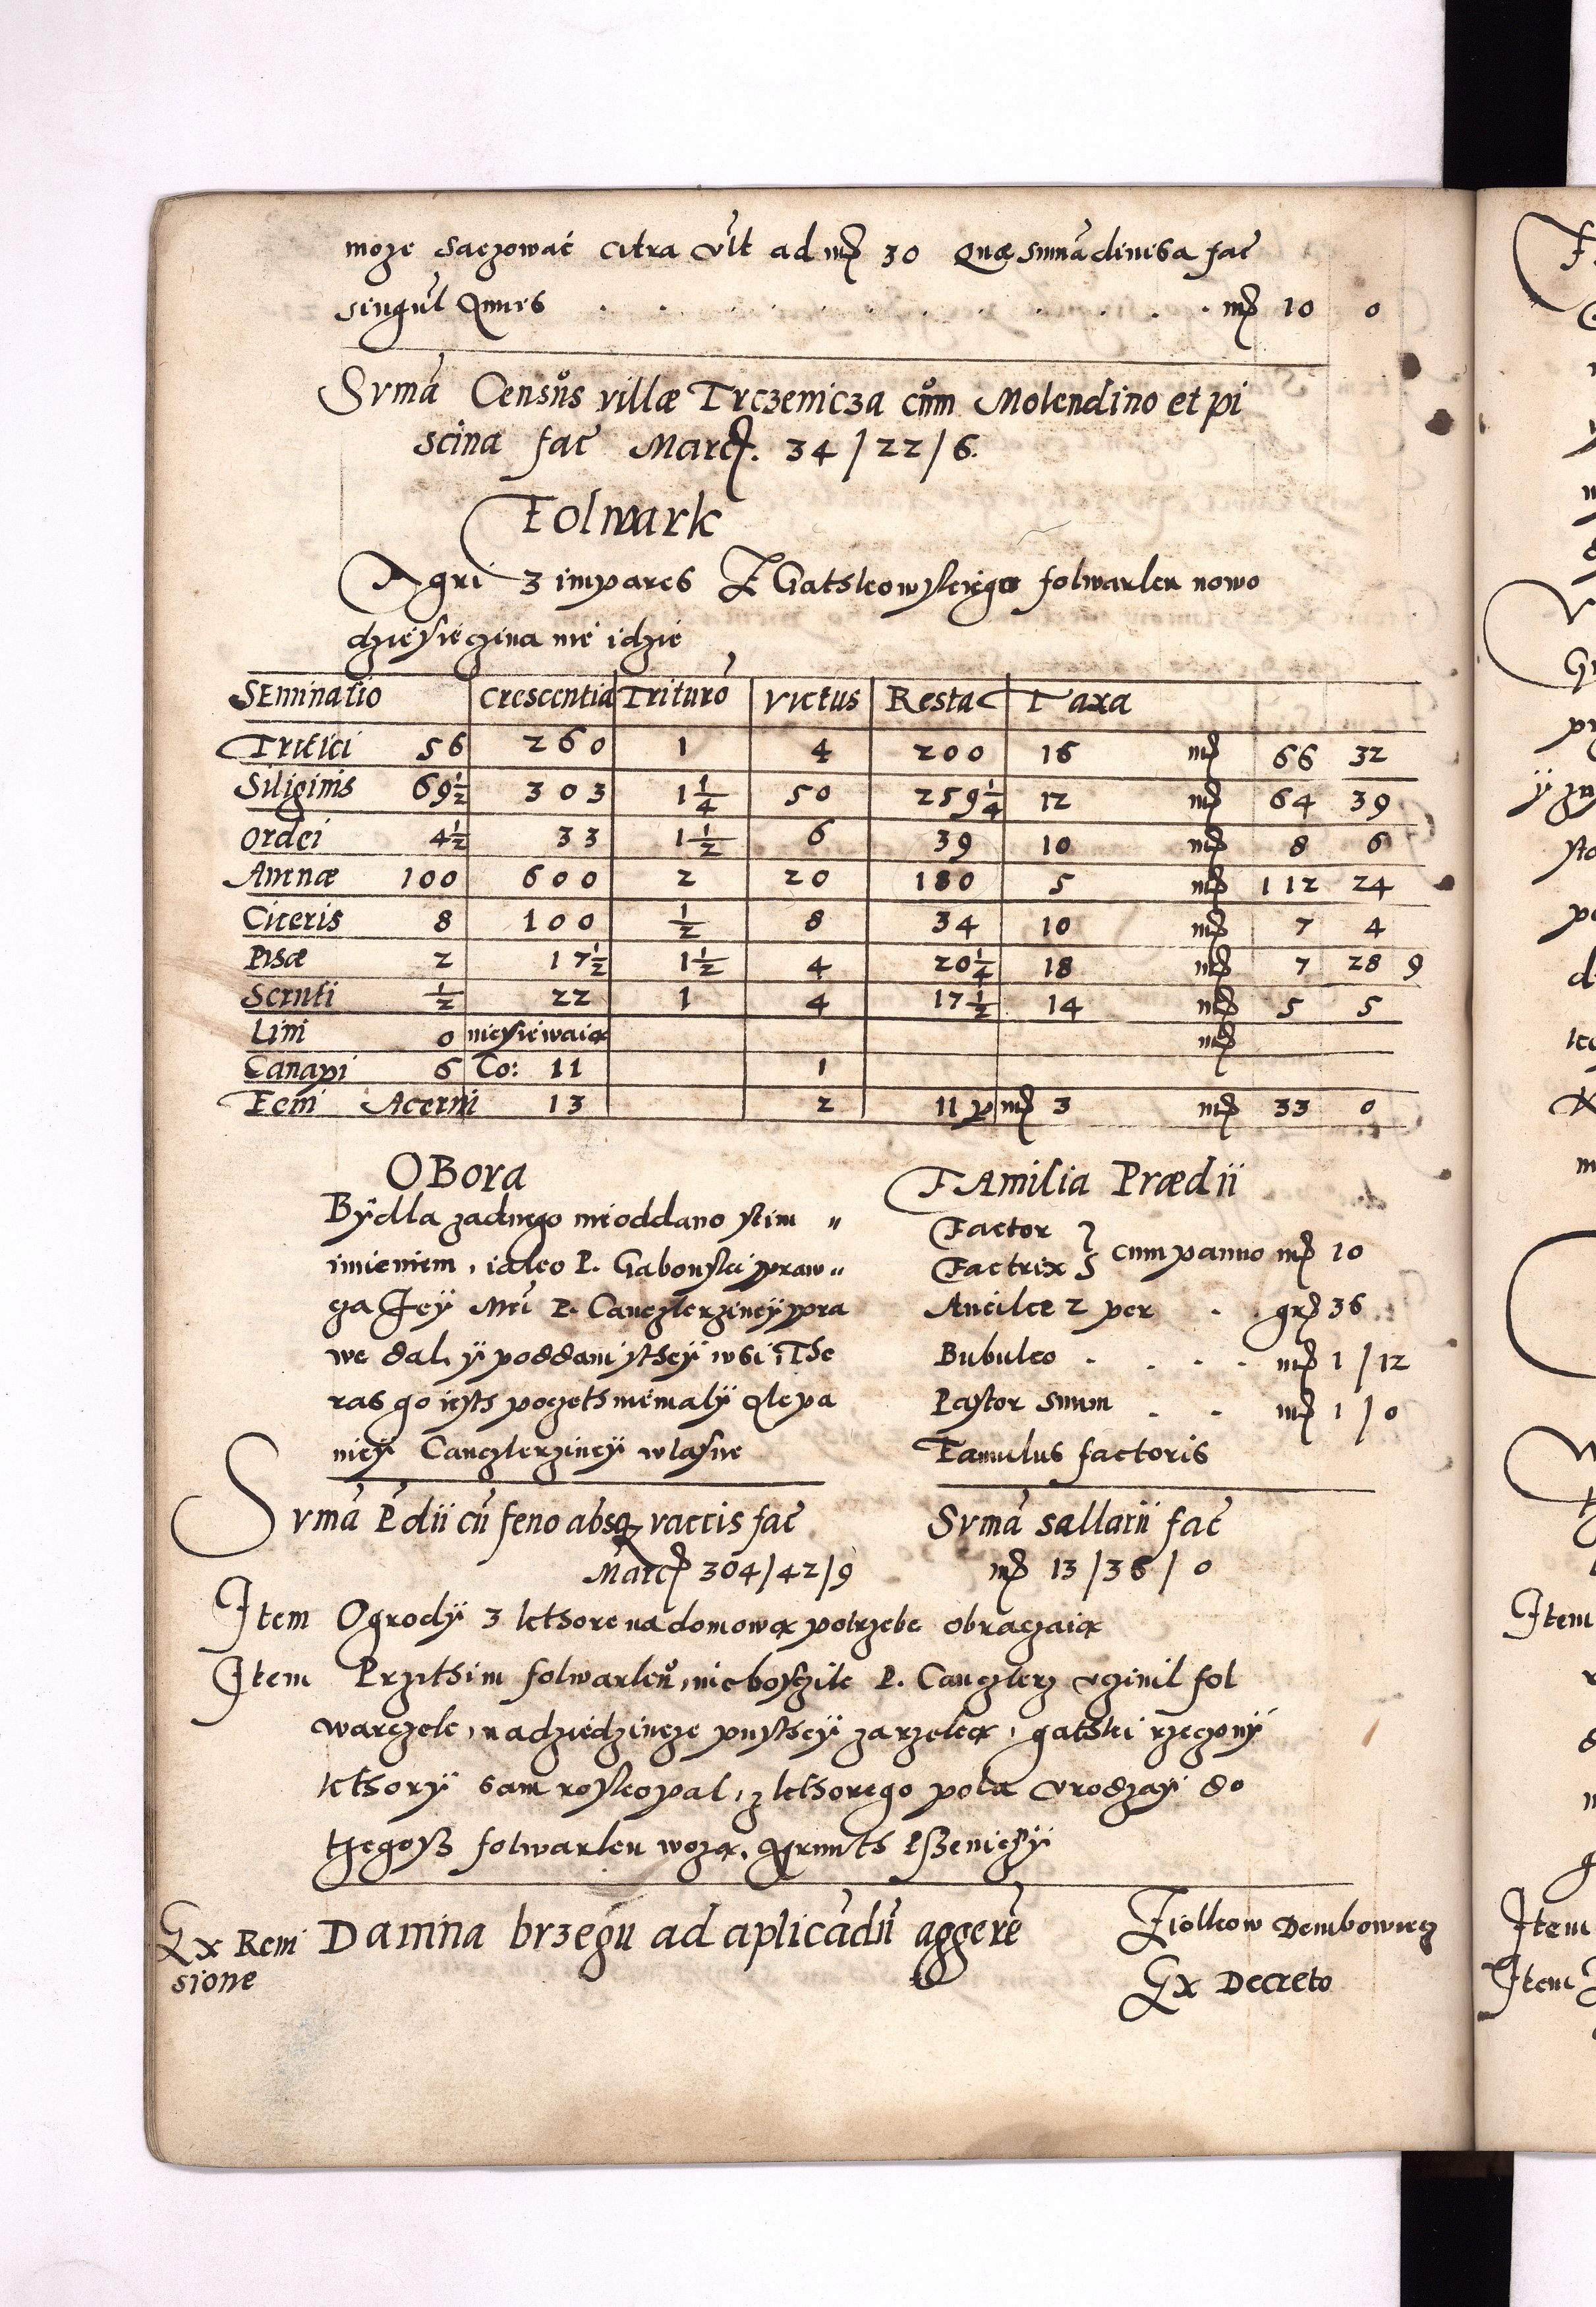 może Saczowac citra vlt ad mr 30 Quæ Suma divisa fac
singul Annis . . . . . . . . . . mr 10 0
Svma Censůs villæ Trczenicza cům Molendino et pi
scina fac Marc. 34 / 22 / 6.
Folwark
Agri 3 impares Z Gatskowyskiego folwarku nowo
dzieSięczina nie idzie
SEminatio Crescentia Trituro Victus Restat Taxa
Tritici 56 260 1 4 200 16 mr 66 32
Siliginis 69½ 303 1¼ 50 259¼ 12 mr 64 39
Ordei 4½ 33 1½ 6 39 10 mr 8 6
Avenæ 100 600 2 20 180 5 mr 112 24
Ciceris 8 100 ½ 8 34 10 mr 7 4
Pisæ 2 17½ 1½ 4 20¼ 18 mr 7 28 9
Scruti ½ 22 1 4 17½ 14 mr 5 5
Lini 0 niesiewaią mr
Canapi 6 Co: 11 1
Feni Acerni 13 2 11 p mr 3 mr 33 0
OBora
Bÿdlla zadnego nieoddano stim „
imieniem, iako P. Gabonski praw „
cza Jeÿ Mci P. Canczlerzineÿ pra
we dal, ÿ poddani stheÿ wsi, The
ras go iesth poczeth niemalÿ Ale pa
nieÿ Canczlerzineÿ wlasne
FAmilia Prædii
Factor
Factrix } cum panno mr 10
Ancilce 2 per . . gr 36
Bubulco . . . . mr 1 / 12
Pastor Suum . . mr 1 / 0
Famulus factoris
Svma Pdii cu feno absq vaccis fac
Marc 304 / 42 / 9
Svma sallarii fac
mr 13 / 36 / 0
Item Ogrodÿ 3 kthore na domową potrzebe obraczaią
Item Przithim folwarků, nieboszcile P. Canczlerz vczinil fol
warczek, nadziedzincze pustheÿ za rzeką, gatski rzeczonÿ
kthorÿ sam roskopal, z kthorego pola vrodzaÿ do
tzegosz folwarku wożą. Grunth Pszeniczÿ
Ex Revi
sione
Danina brzegu ad aplicadu aggere
Ziolkow Dembowiecz
Ex Decreto